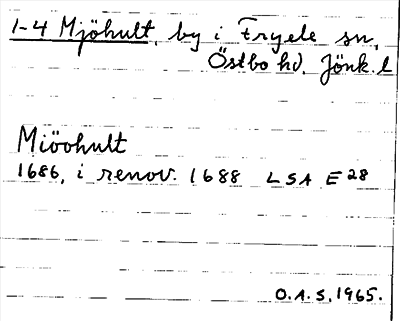 1-4 Mjöhult, by i Fryele sn,
Östbo hd, Jönk. l
Miöohult
1686, i renov. 1688 LSA E28
O.A.S. 1965.